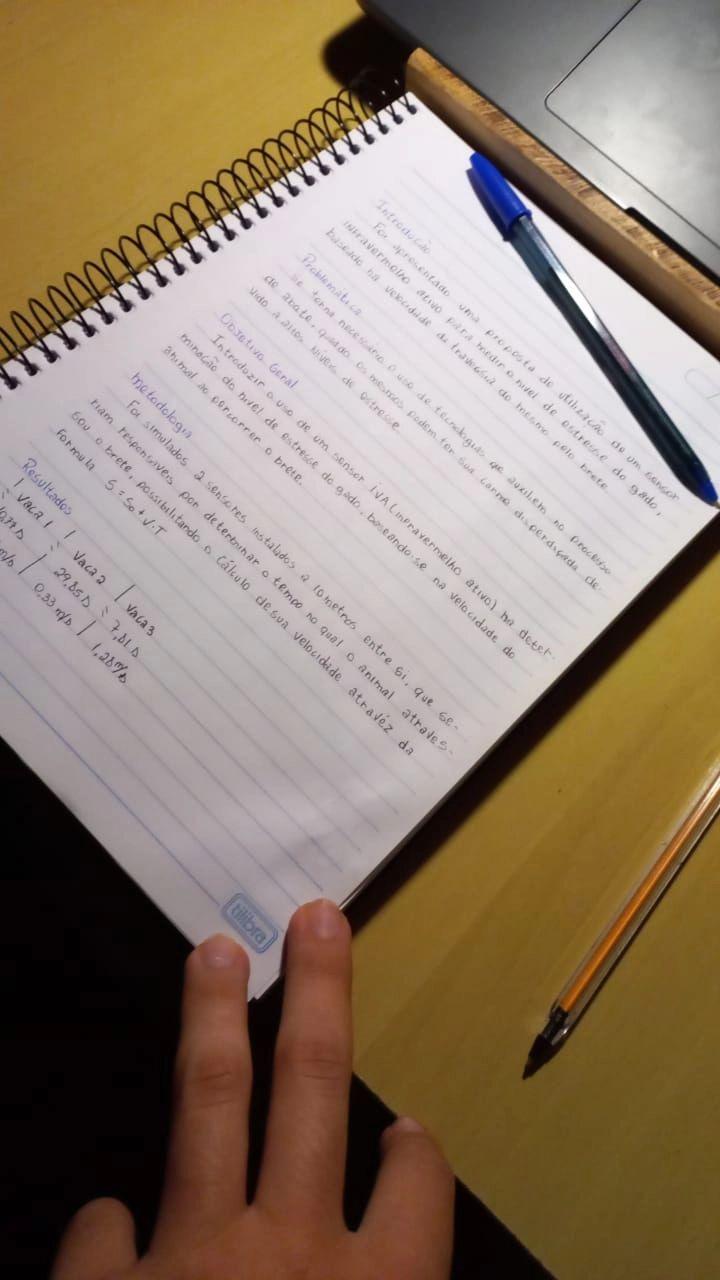 Introdução
Foi apresentado uma proposta de utilização de um sensor
infravermelho ativo para medir o nivel de estresse do gado,
baseado na velocidade da travessia do mesmo pelo brete
Problematica
se torna necessário o uso de tecnologias que auxilem no processo
de abate, quado os mesmos podem ter sua carne disperdiçada de-
vido a altos niveis de estresse
Objetivo Geral
Introduzir o uso de um sensor IVA (infravermelho ativo) na deter-
minação do nivel de estresse do gado, baseando-se na velocidade do
animal ao percorrer o brete.
metodologia
Foi simulados 2 sensores instalados a 10 metros entre si, que se-
riam responsiveis por determinar o tempo no qual o animal atraves-
sou o brete, possibilitando o cálculo de sua velocidade atravéz da
formula S = So + V.T
Resultados
| Vaca 1 | Vaca 2 | Vaca 3
29,85s 7,81s
m/s | 0,33 m/s | 1,28 m/s
tilibra